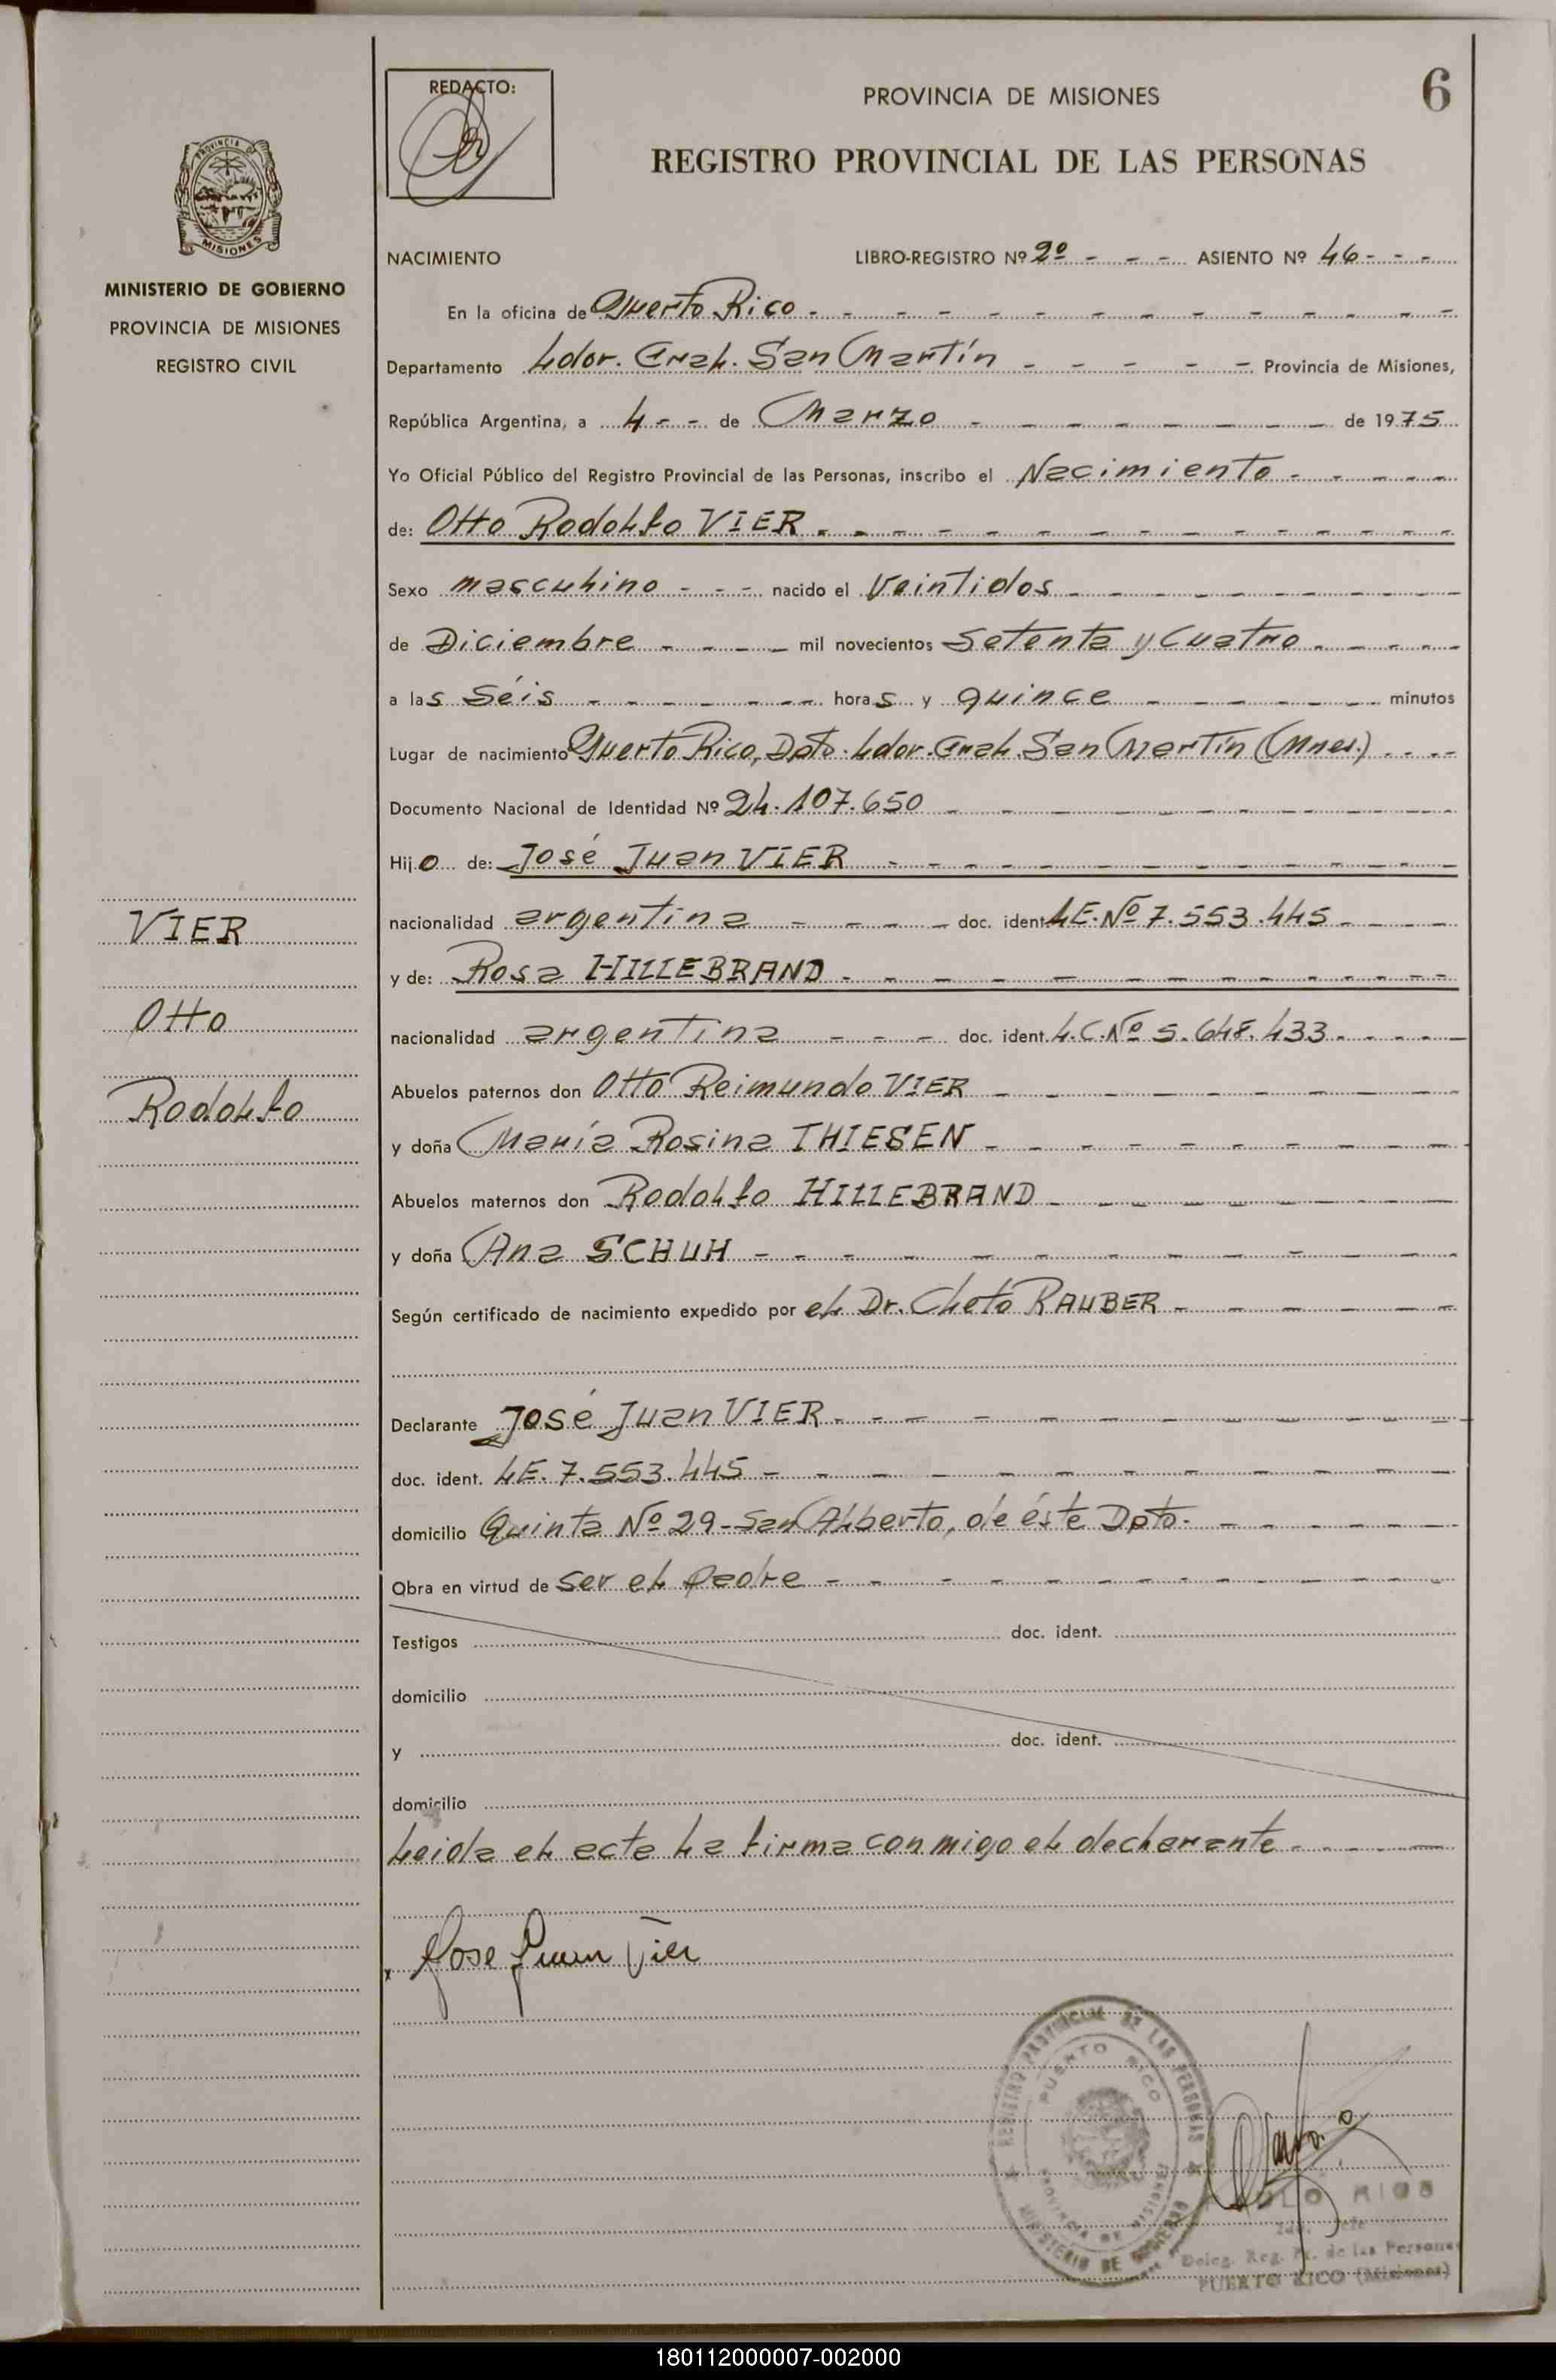 REDACTO:
PROVINCIA DE MISIONES
6
REGISTRO PROVINCIAL DE LAS PERSONAS
MISIONES
MINISTERIO DE GOBIERNO
PROVINCIA DE MISIONES
REGISTRO CIVIL
NACIMIENTO LIBRO-REGISTRO Nº 2º - - - ASIENTO Nº 46 - - -
En la oficina de Puerto Rico
Departamento Ldor. Gral. San Martín Provincia de Misiones,
República Argentina, a 4 - - de Marzo de 1975
Yo Oficial Público del Registro Provincial de las Personas, inscribo el Nacimiento
de: Otto Rodolfo VIER
Sexo masculino - - - nacido el Veintidos
de Diciembre mil novecientos Setenta y Cuatro
a las Séis horas y quince minutos
Lugar de nacimiento Puerto Rico, Dpto. Ldor. Gral. San Martín (Mnes.)
Documento Nacional de Identidad Nº 24.107.650
Hijo de: José Juan VIER
nacionalidad argentina doc. ident. LE. Nº 7.553.445
y de: Rosa HILLEBRAND
nacionalidad argentina doc. ident. L.C. Nº 5.648.433
Abuelos paternos don Otto Reimundo VIER
y doña María Rosina THIESEN
Abuelos maternos don Rodolfo HILLEBRAND
y doña Ana SCHUH
Según certificado de nacimiento expedido por el Dr. Cleto RAUBER
Declarante José Juan VIER
doc. ident. LE. 7.553.445
domicilio Quinta Nº 29 - San Alberto, de éste Dpto.
Obra en virtud de ser el padre
Testigos doc. ident.
domicilio
y doc. ident.
domicilio
Leida el acta la firma conmigo el declarante
VIER
Otto
Rodolfo
x Jose Juan Vier
REGISTRO PROVINCIAL DE LAS PERSONAS
PUERTO RICO
PROVINCIA DE MISIONES
MINISTERIO DE GOBIERNO
RIOS
Deleg. Reg. Pr. de las Personas
PUERTO RICO (Misiones)
180112000007-002000